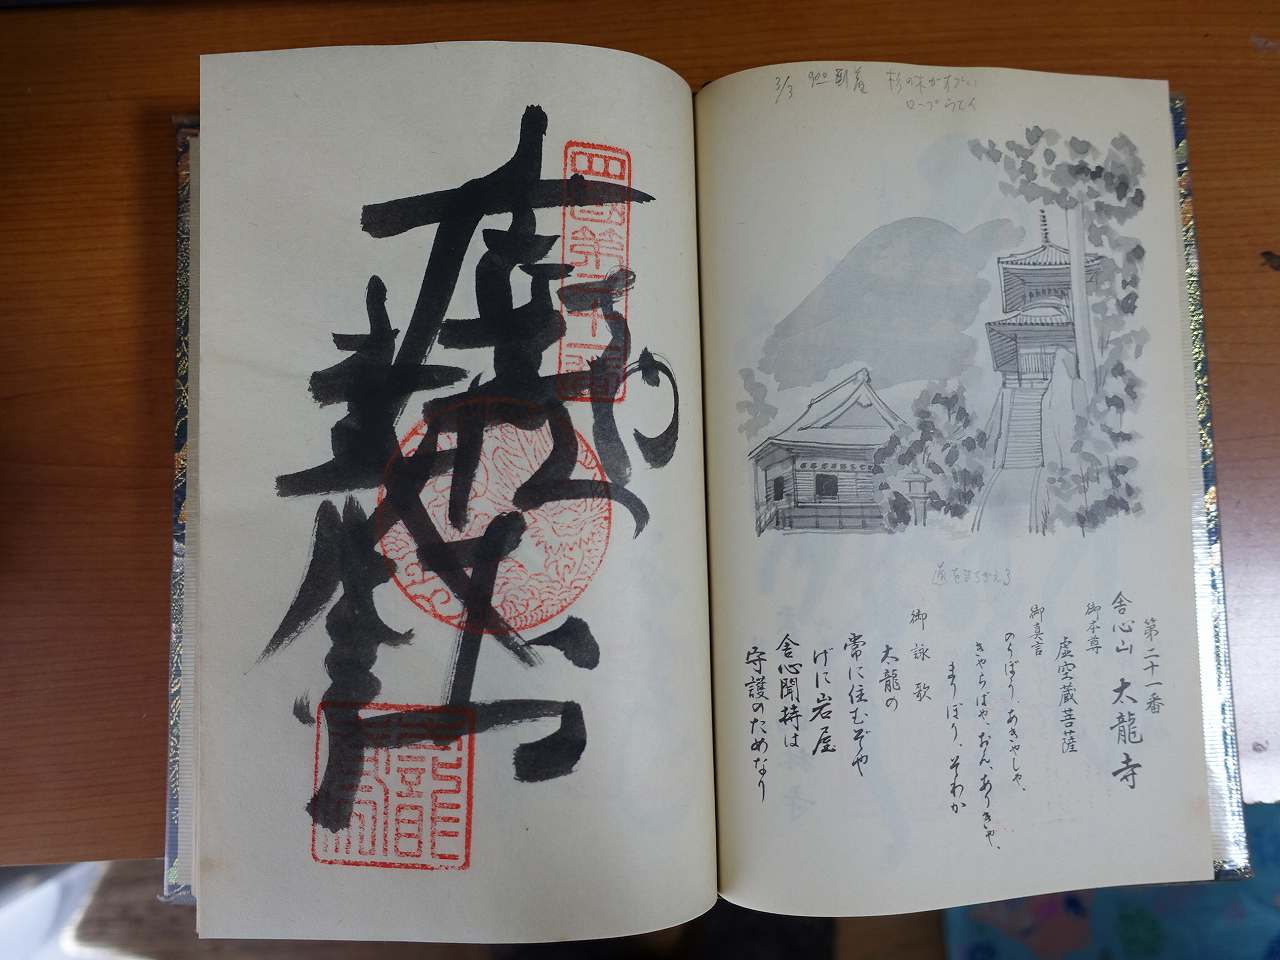 3/3 9:00 到着 杉の木がすごい
ロープウェイ
道をまちがえる
第二十一番
舎心山 太龍寺
御本尊
虚空蔵菩薩
御真言
のうぼう、あきゃしゃ、
きゃらばや、おん、ありきゃ、
まりぼり、そわか
御詠歌
太龍の
常に住むぞや
げに岩屋
舎心聞持は
守護のためなり
四國第二十一番